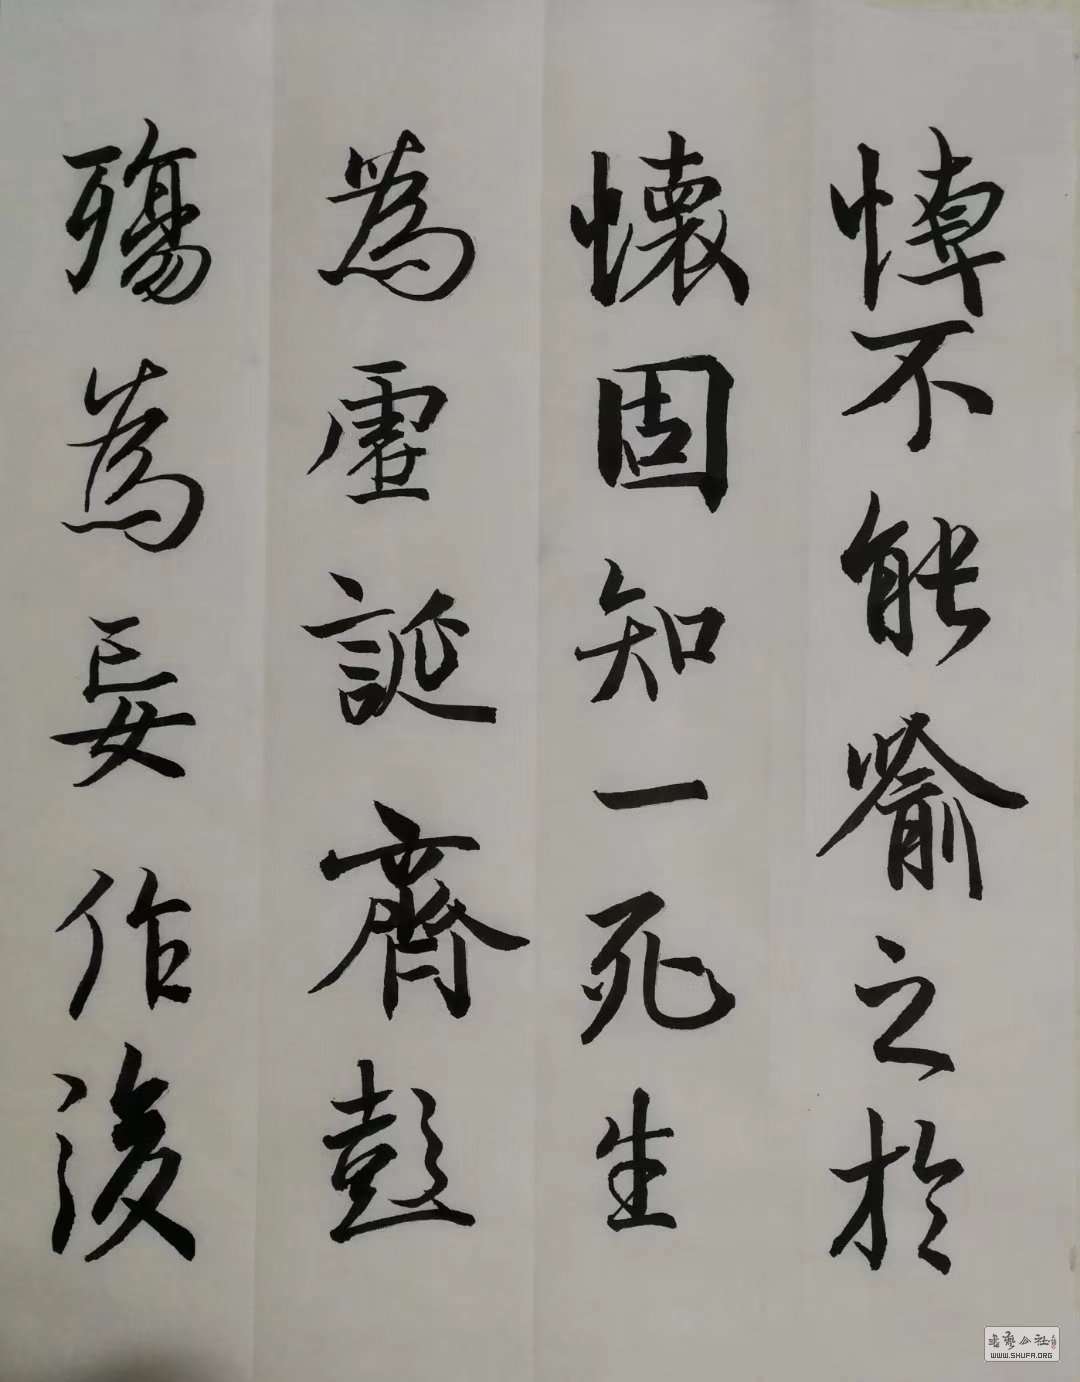 悼不能喻之於
懷固知一死生
為虛誕齊彭
殤為妄作後
WWW.SHUFA.ORG